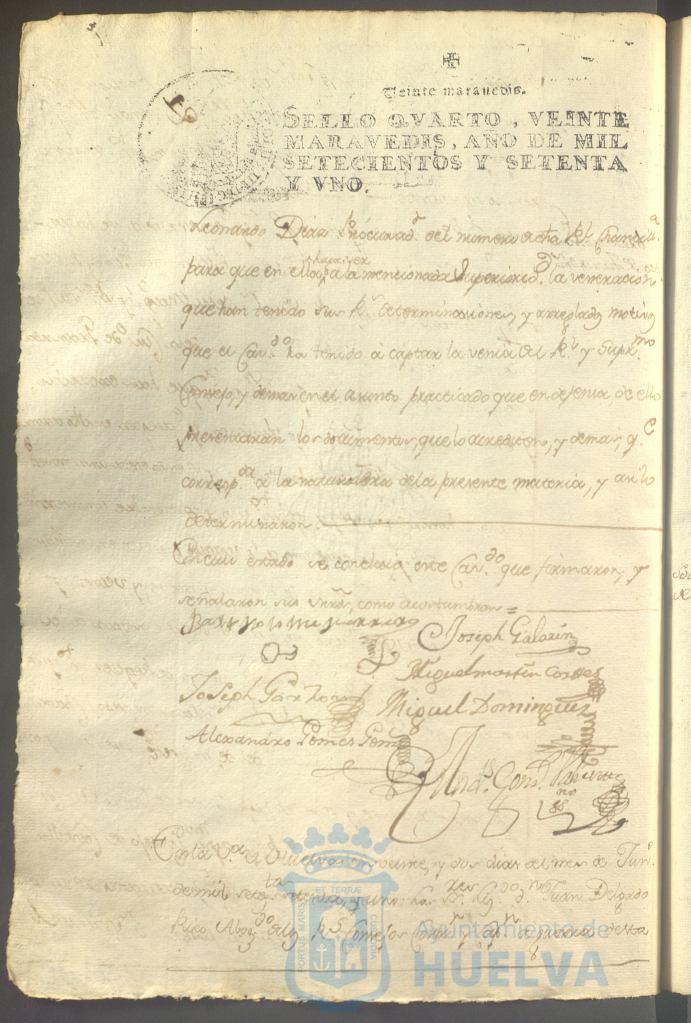 Veinte maravedis.
SELLO QVARTO, VEINTE
MARAVEDIS, AÑO DE MIL
SETECIENTOS Y SETENTA
Y VNO.
Leonardo Diaz Procurad.r del numero de dha R.l Chanz.a
para que en ella haga ver a la mencionada Superiorid.d la veneracion
que han tenido sus R.s determinaciones, y arreglados motivos
que el Cav.do ha tenido à captar la venia del R.l y Supr.mo
Consejo, y demas en el asunto practicado que en defensa de ello
presentaran los documentos, que lo acrediten, y demas, q.e
corresp.da à la naturaleza de la presente materia, y así lo
determinaron.
En cuio estado se concluió este Cav.do que firmaron, y
señalaron sus mrds, como acostumbran =
Joseph Galarin
Miguel martin Cortes
Joseph Garzon
Miguel Dominguez
Alexandro Pomes
And.s Gonz.
En la V.a de Huelva en veinte, y dos dias del mes de Jun.o
de mil setez.tos setenta, y uno: los S.res Liz.do D.n Juan Delgado
Rico Abog.do de los R.s Consejos Correx.r y Cap.n a guerra de esta
PORTUS MARIS ET TERRAE CUSTODIA
Ayuntamiento de
HUELVA